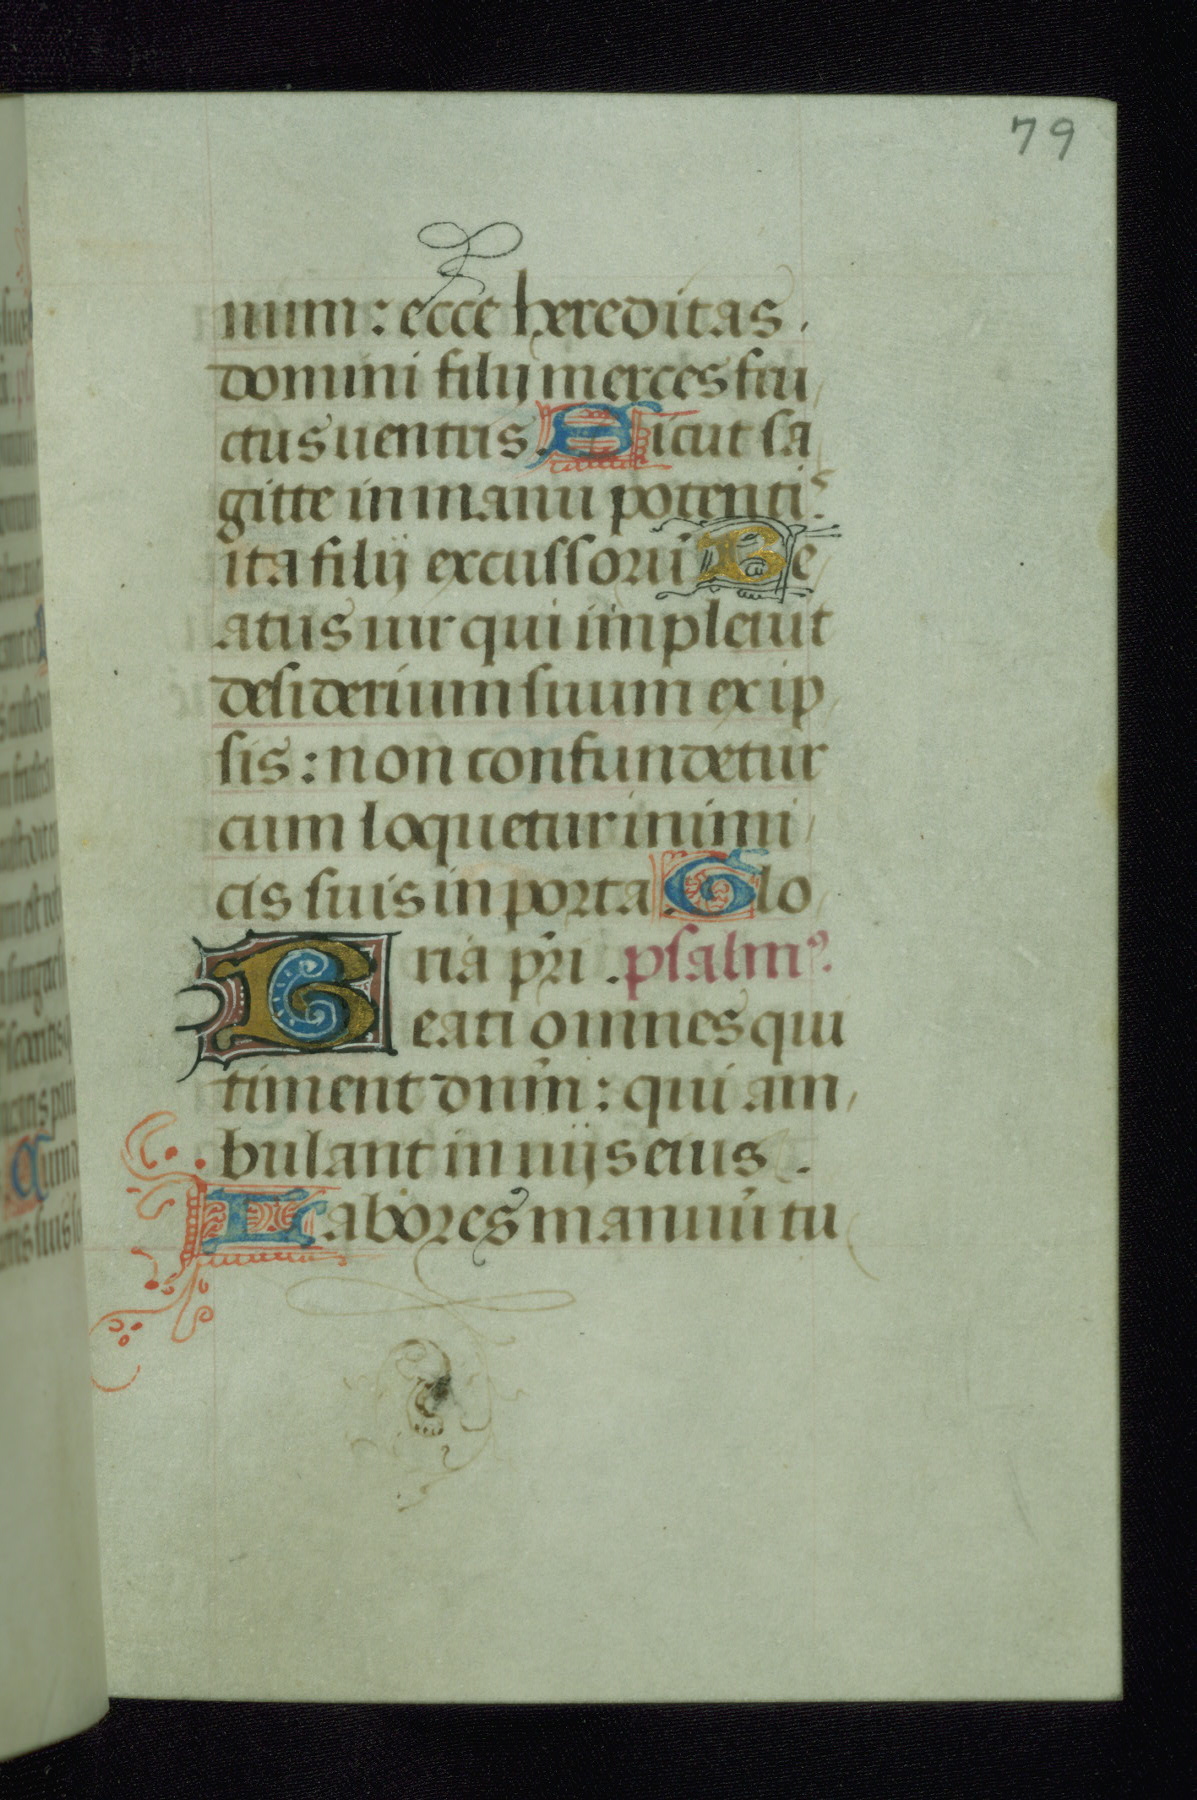 79
num: ecce hereditas.
domini filij merces fru
ctus uentris. Sicut sa
gitte in manu potentis:
ita filij excussorū Be
atus uir qui impleuit
desiderium suum ex ip
sis: non confundetur
cum loquetur inimi
cis suis in porta. Glo
ria pr̄i. psalmꝰ.
Beati omnes qui
timent dn̄m: qui am
bulant in uijs eius.
Labores manuū tu